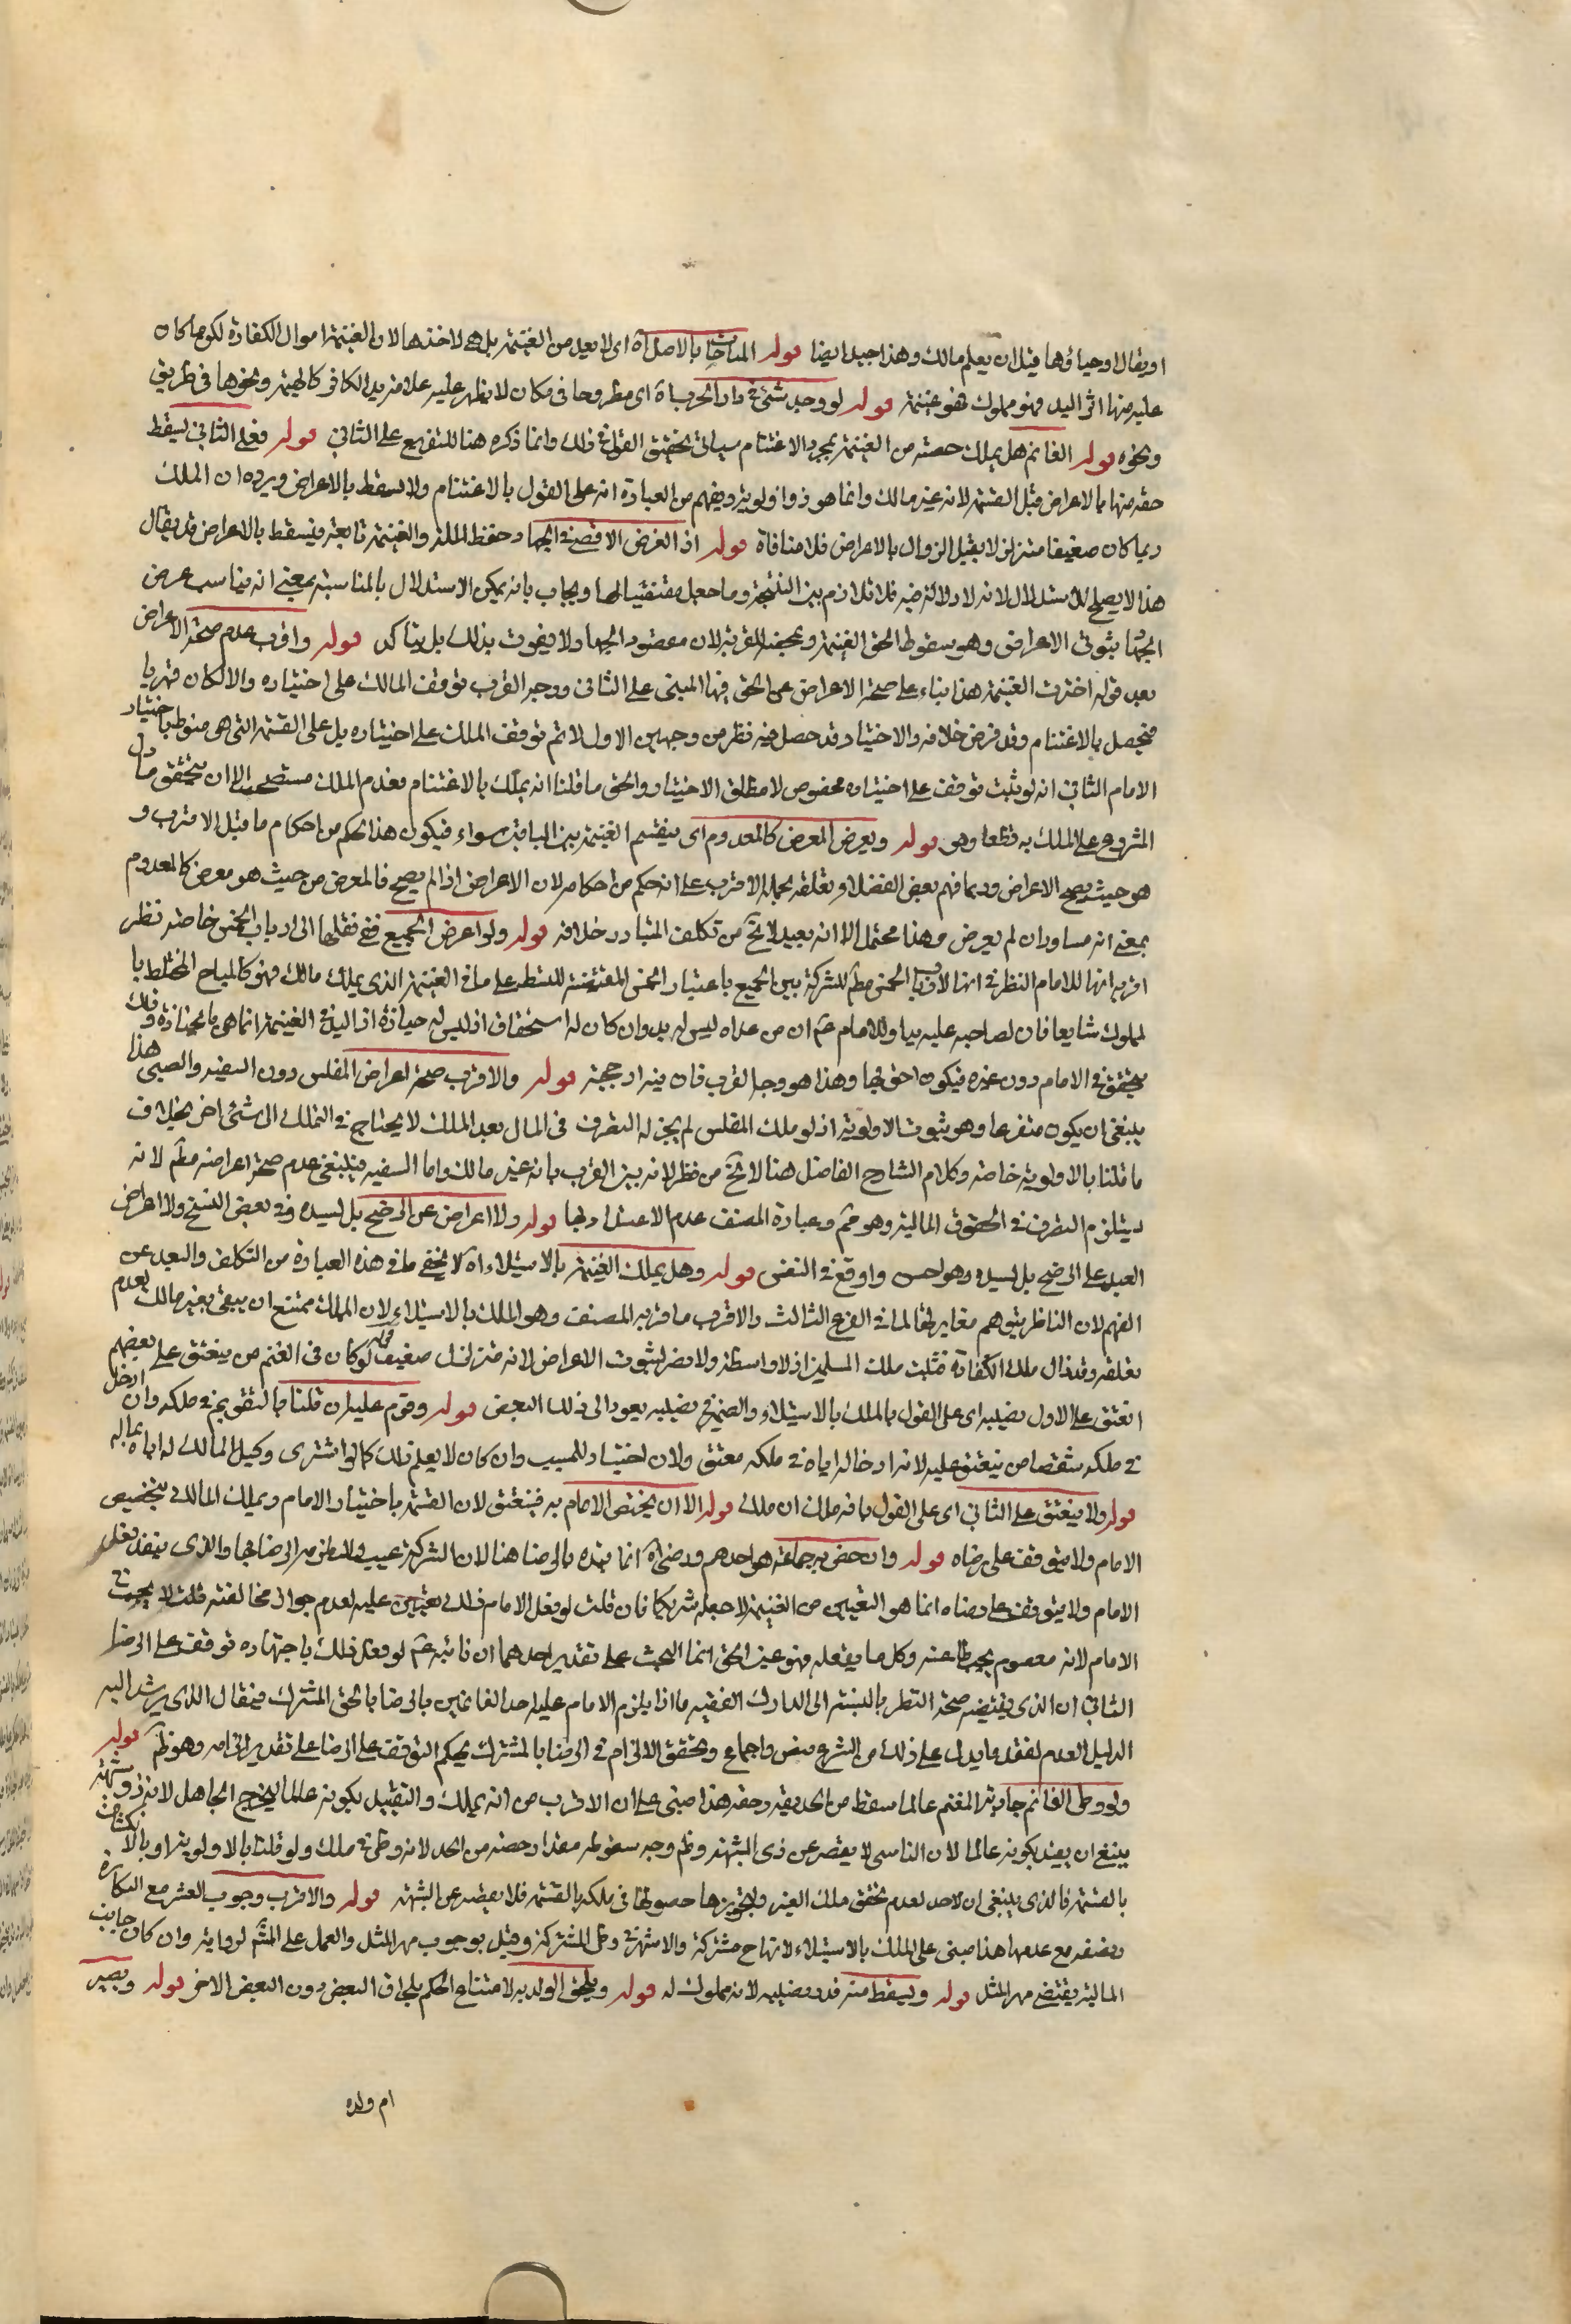 او يقال وحياؤها قبل ان يعلم مالك وهذا جيد ايضا قوله المباحات بالاصل آه اى لا يعد من الغنيمة بل هى لاخذها لان الغنيمة اموال الكفارة لكونها كان
عليه منها اثر اليد فهو مملوك فهو غنيمة قوله لو وجد شئ فى دار الحرب آه اى مطروحا فى مكان لا يظهر عليه علامة يد الكافر كالهيمة ونحوها فى طريق
ونحوه قوله الغانم هل يملك حصته من الغنيمة بمجرد الاغتنام سياتى تحقيق القول فى ذلك وانما ذكره هنا للتفريع على الثانى قوله فعلى الثانى يسقط
حقه منها بالاعراض قبل القسمة لانه غير مالك وانما هو ذو اولوية ويفهم من العبارة انه على القول بالاغتنام ولا يسقط بالاعراض ويرده ان الملك
ربما كان ضعيفا متزلزلا يقبل الزوال بالاعراض فلا منافاة قوله اذ الغرض الاقصى فى الجهاد حفظ الملة والغنيمة تابعة فيسقط بالاعراض قد يقال
هذا لا يصلح للاستدلال لانه لا دلالة فيه فلا تلازم بين النتيجة وما جعل مقتضيا لها ويجاب بانه يمكن الاستدلال بالمناسبة بمعنى انه يناسب عرض
الجهاد ثبوت الاعراض وهو سقوط الحق الغنيمة ومحض القربة لان مقصود الجهاد لا يفوت بذلك بل يتاكد قوله واقرب عدم صحة الاعراض
بعد قوله اخترت الغنيمة هذا بناء على صحة الاعراض عن الحق فيها المبنى على الثانى ووجه القرب توقف المالك على اختياره والا لكان قهريا
فيحصل بالاغتنام وقد فرض خلافه والاختيار قد حصل فيه نظر من وجهين الاول لا ثم توقف الملك على اختياره بل على القسمة التى هى منوطة باختيار
الامام الثانى انه لو ثبت توقف على اختياره مخصوص لا مطلق الاختيار والحق ما قلنا انه يملك بالاغتنام فعدم الملك مستصحب الا ان يتحقق ما دل
الشروع على الملك به قطعا وهى قوله ويعرض المعرض كالمعدوم اى يقسم الغنيمة بين الباقين سواء فيكون هذا الحكم من احكام ما قبل الاقرب و
هو حيث يصح الاعراض وربما فهم بعض الفضلاء تعلقه بجملة الاقرب على انه حكم من احكامه لان الاعراض اذا لم يصح فالمعرض من حيث هو معرض كالمعدوم
بمعنى انه مساو لان لم يعرض وهذا محتمل الا انه بعيد لا يخ من تكلف المتبادر خلافه قوله ولو اعرض الجميع ففى نقلها الى ارباب الخمس خاصة نظر
اقربه انها للامام النظر فى انها لارباب الخمس مط للشركة بين الجميع باعتبار الخمس المقتضية للتسلط على ما فى الغنيمة الذى يملك مالك فهو كالمباح المختلط با
لمملوك شايعا فان لصاحبه عليه يدا وللامام عم ان من عداه ليس له يد وان كان له استحقاق اذ ليس له حيازة اذ اليد فى الغنيمة انما هى بالحيازة وذلك
يتحقق فى الامام دون غيره فيكون احق بها وهذا هو وجه القرب فان فيه ارجحية قوله والاقرب صحة اعراض المفلس دون السفيه والصبى هذا
ينبغى ان يكون متفرعا وهو ثبوت الاولوية اذ لو ملك المفلس لم يجز له التصرف فى المال بعد الملك لا يحتاج فى التملك الى شئ اخر بخلاف
ما قلنا بالاولوية خاصة وكلام الشارح الفاضل هنا لا يخ من نظر لانه بين القرب بانه غير مالك واما السفيه فينبغى عدم صحة اعراضه مط لانه
يستلزم التصرف فى الحقوق المالية وهو مم وعبارة المصنف عدم الاعتداد بها قوله ولا اعراض عن الرضخ بل لسيده وفى بعض النسخ ولا اعراض
العبد على الرضخ بل لسيده وهو احسن واوقع فى النفس قوله وهل يملك الغنيمة بالاستيلاء آه لا يخفى ما فى هذه العبارة من التكلف والبعد عن
الفهم لان الناظر يتوهم مغايرتها لما فى الفرع الثالث والاقرب ما قربه المصنف وهو الملك بالاستيلاء لان الملك ممتنع ان يبقى بغير مالك لعدم
تعلقه وقد زال ملك الكفارة فثبت ملك المسلمين اذ لا واسطة ولا مضر لثبوت الاعراض لانه متزلزل ضعيف قوله لو كان فى الغنم من ينعتق على بعضهم
انعتق على الاول نصيبه اى على القول بالملك بالاستيلاء والضمير فى نصيبه يعود الى ذلك البعض قوله وقوم عليه ان قلنا بالتقويم فى ملكه وان ادخل
فى ملكه شقصا من ينعتق عليه لانه ادخاله اياه فى ملكه معتق ولان اختيار للسبب وان كان لا يعلم ذلك كما لو اشترى وكيل المالك له اباه بماله
قوله ولا ينعتق على الثانى اى على القول بانه ملك ان ملك قوله الا ان يختص الامام به فينعتق لان القسمة باختيار الامام ويملك المالك بتخصيص
الامام ولا يتوقف على رضاه قوله وان خص به جماعة هو احدهم ورضى آه انما قيده بالرضا هنا لان الشركة عيب فلا يلزمه الرضا بها والذى ينفذ بفعل
الامام ولا يتوقف على رضاه انما هو التعيين من الغنيمة لا جعله شريكا فان قلت لو فعل الامام ذلك تعين عليه لعدم جواز مخالفته قلت لا بحث فى
الامام لانه معصوم يجب طاعته وكل ما يفعله فهو عين الحق انما البحث على تقدير احدهما ان نائبه عم لو فعل ذلك باجتهاده توقف على الرضا
الثانى ان الذى يقتضيه صحة النظر بالنسبة الى المدارك الفقهيه ما اذا يلزم الامام عليه احد الغانمين بالرضا بالحق المشترك فيقال الذى يرشد اليه
الدليل العدم لفقد ما يدل على ذلك من الشرع بنص واجماع وتحقق الالزام فى الرضا بالمشترك يحكم التوقف على الرضا على تقدير الزامه وهو ظم قوله
ولو وطئ الغانم جارية المغنم عالما سقط من الحد بقدر حقه هذا مبنى على ان الاقرب من انه يملك والتقييد بكونه عالما ليخرج الجاهل لانه ذو شبهة
ينبغى ان يقيد بكونه عالما لان الناسى لا يقصر عن ذى الشبهة وظم وجه سقوطه مقدار حصته من الحد لانه وطئ فى ملك ولو قلنا بالاولوية او بالاكتشاف
بالقسمة فالذى ينبغى ان لا حد لعدم تحقق ملك الغير وبتجويزها حصولها فى ملكه بالقسمة فلا يقصر عن الشبهة قوله والاقرب وجوب العشر مع البكارة
ونصفه مع عدمها هذا مبنى على الملك بالاستيلاء لانها ح مشتركة والاشهر فى وطى المشتركة وقيل بوجوب مهر المثل والعمل على المشهم لروايته وان كان جانب
المالية يقتضى مهر المثل قوله ويسقط منه قدر نصيبه لانه مملوك له قوله ويلحق الولد به لامتناع الحكم بلحاق البعض دون البعض الاخر قوله ويصير
ام ولده